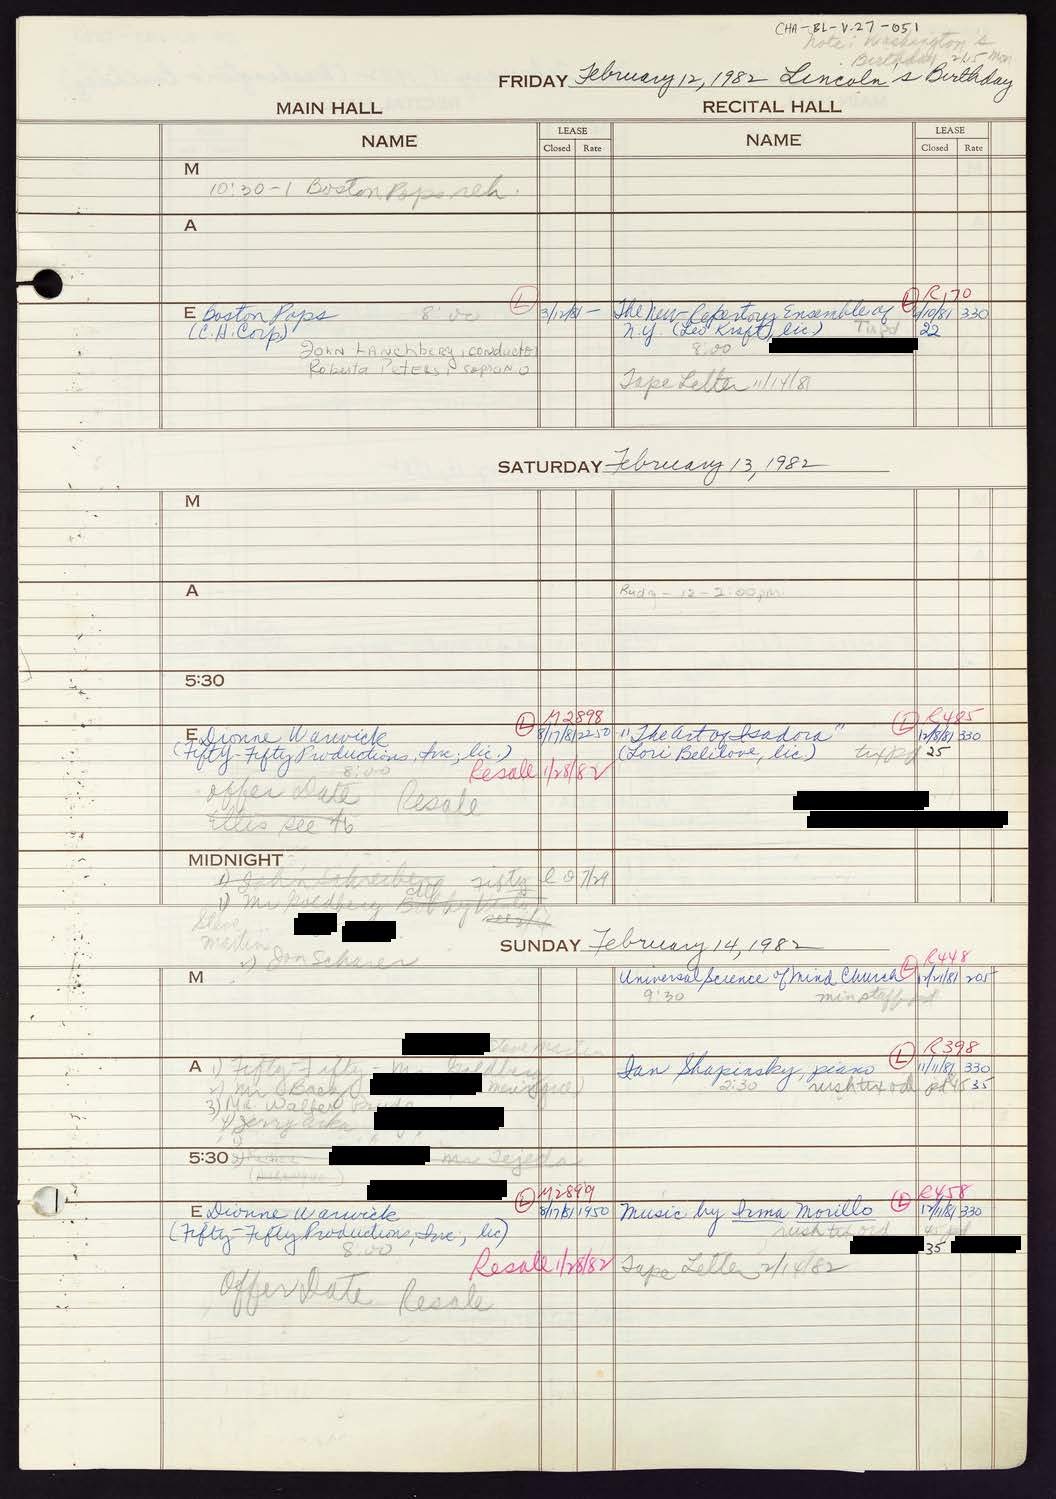 CHA-BL-V.27-051
note: Washington's
Birthday 2/15 Mon
FRIDAY February 12, 1982 Lincoln's Birthday
MAIN HALL
RECITAL HALL
NAME
LEASE
Closed Rate
NAME
LEASE
Closed Rate
M
10:30-1 Boston Pops reh.
A
E Boston Pops 8:00 L 3/12/81 —
(C.H. Corp)
John Lanchbery, conductor
Roberta Peters, soprano
L R170
The New Repertory Ensemble of 330
N.Y. (Leo Kraft, lic.) 22
8:00
Tape Letter 11/14/81
SATURDAY February 13, 1982
M
A
Rudy - 12-2:00 pm.
5:30
L M2898
E Dionne Warwick 8/17/81 2250
(Fifty-Fifty Productions, Inc., lic.)
8:00
Resale 1/28/82
Offer Date Resale
Ellis see
L R485
"The Art of Isadora" 12/8/81 330
(Lori Belilove, lic) tix pd 25
MIDNIGHT
1) John Schreiber Fifty 7/29
1) Mr Goldberg
Steve
Martin
2) Jon Scharer
SUNDAY February 14, 1982
M
L R448
Universal Science of Mind Church 12/21/81 205
9:30 min staff pd
Steve Martin
A 1) Fifty-Fifty - Mr. Goldberg
2) Mr
3) Mr. Walter
4) Jerry
L R398
Ian Shapinsky, piano 11/11/81 330
2:30 rush tix pd 35
5:30
Mr. Tejeda
L M2899
E Dionne Warwick 8/17/81 1950
(Fifty-Fifty Productions, Inc., lic)
8:00
Resale 1/28/82
Offer Date Resale
L R458
Music by Irma Morillo 330
35
Tape Letter 2/14/82